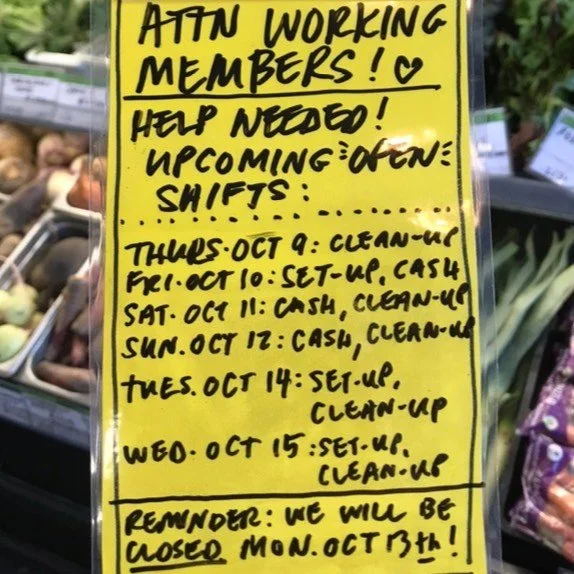 ATTN WORKING
MEMBERS! ♡
HELP NEEDED!
UPCOMING OPEN
SHIFTS:
THURS. OCT 9: CLEAN-UP
FRI. OCT 10: SET-UP, CASH
SAT. OCT 11: CASH, CLEAN-UP
SUN. OCT 12: CASH, CLEAN-UP
TUES. OCT 14: SET-UP,
CLEAN-UP
WED. OCT 15: SET-UP,
CLEAN-UP
REMINDER: WE WILL BE
CLOSED MON. OCT 13th!